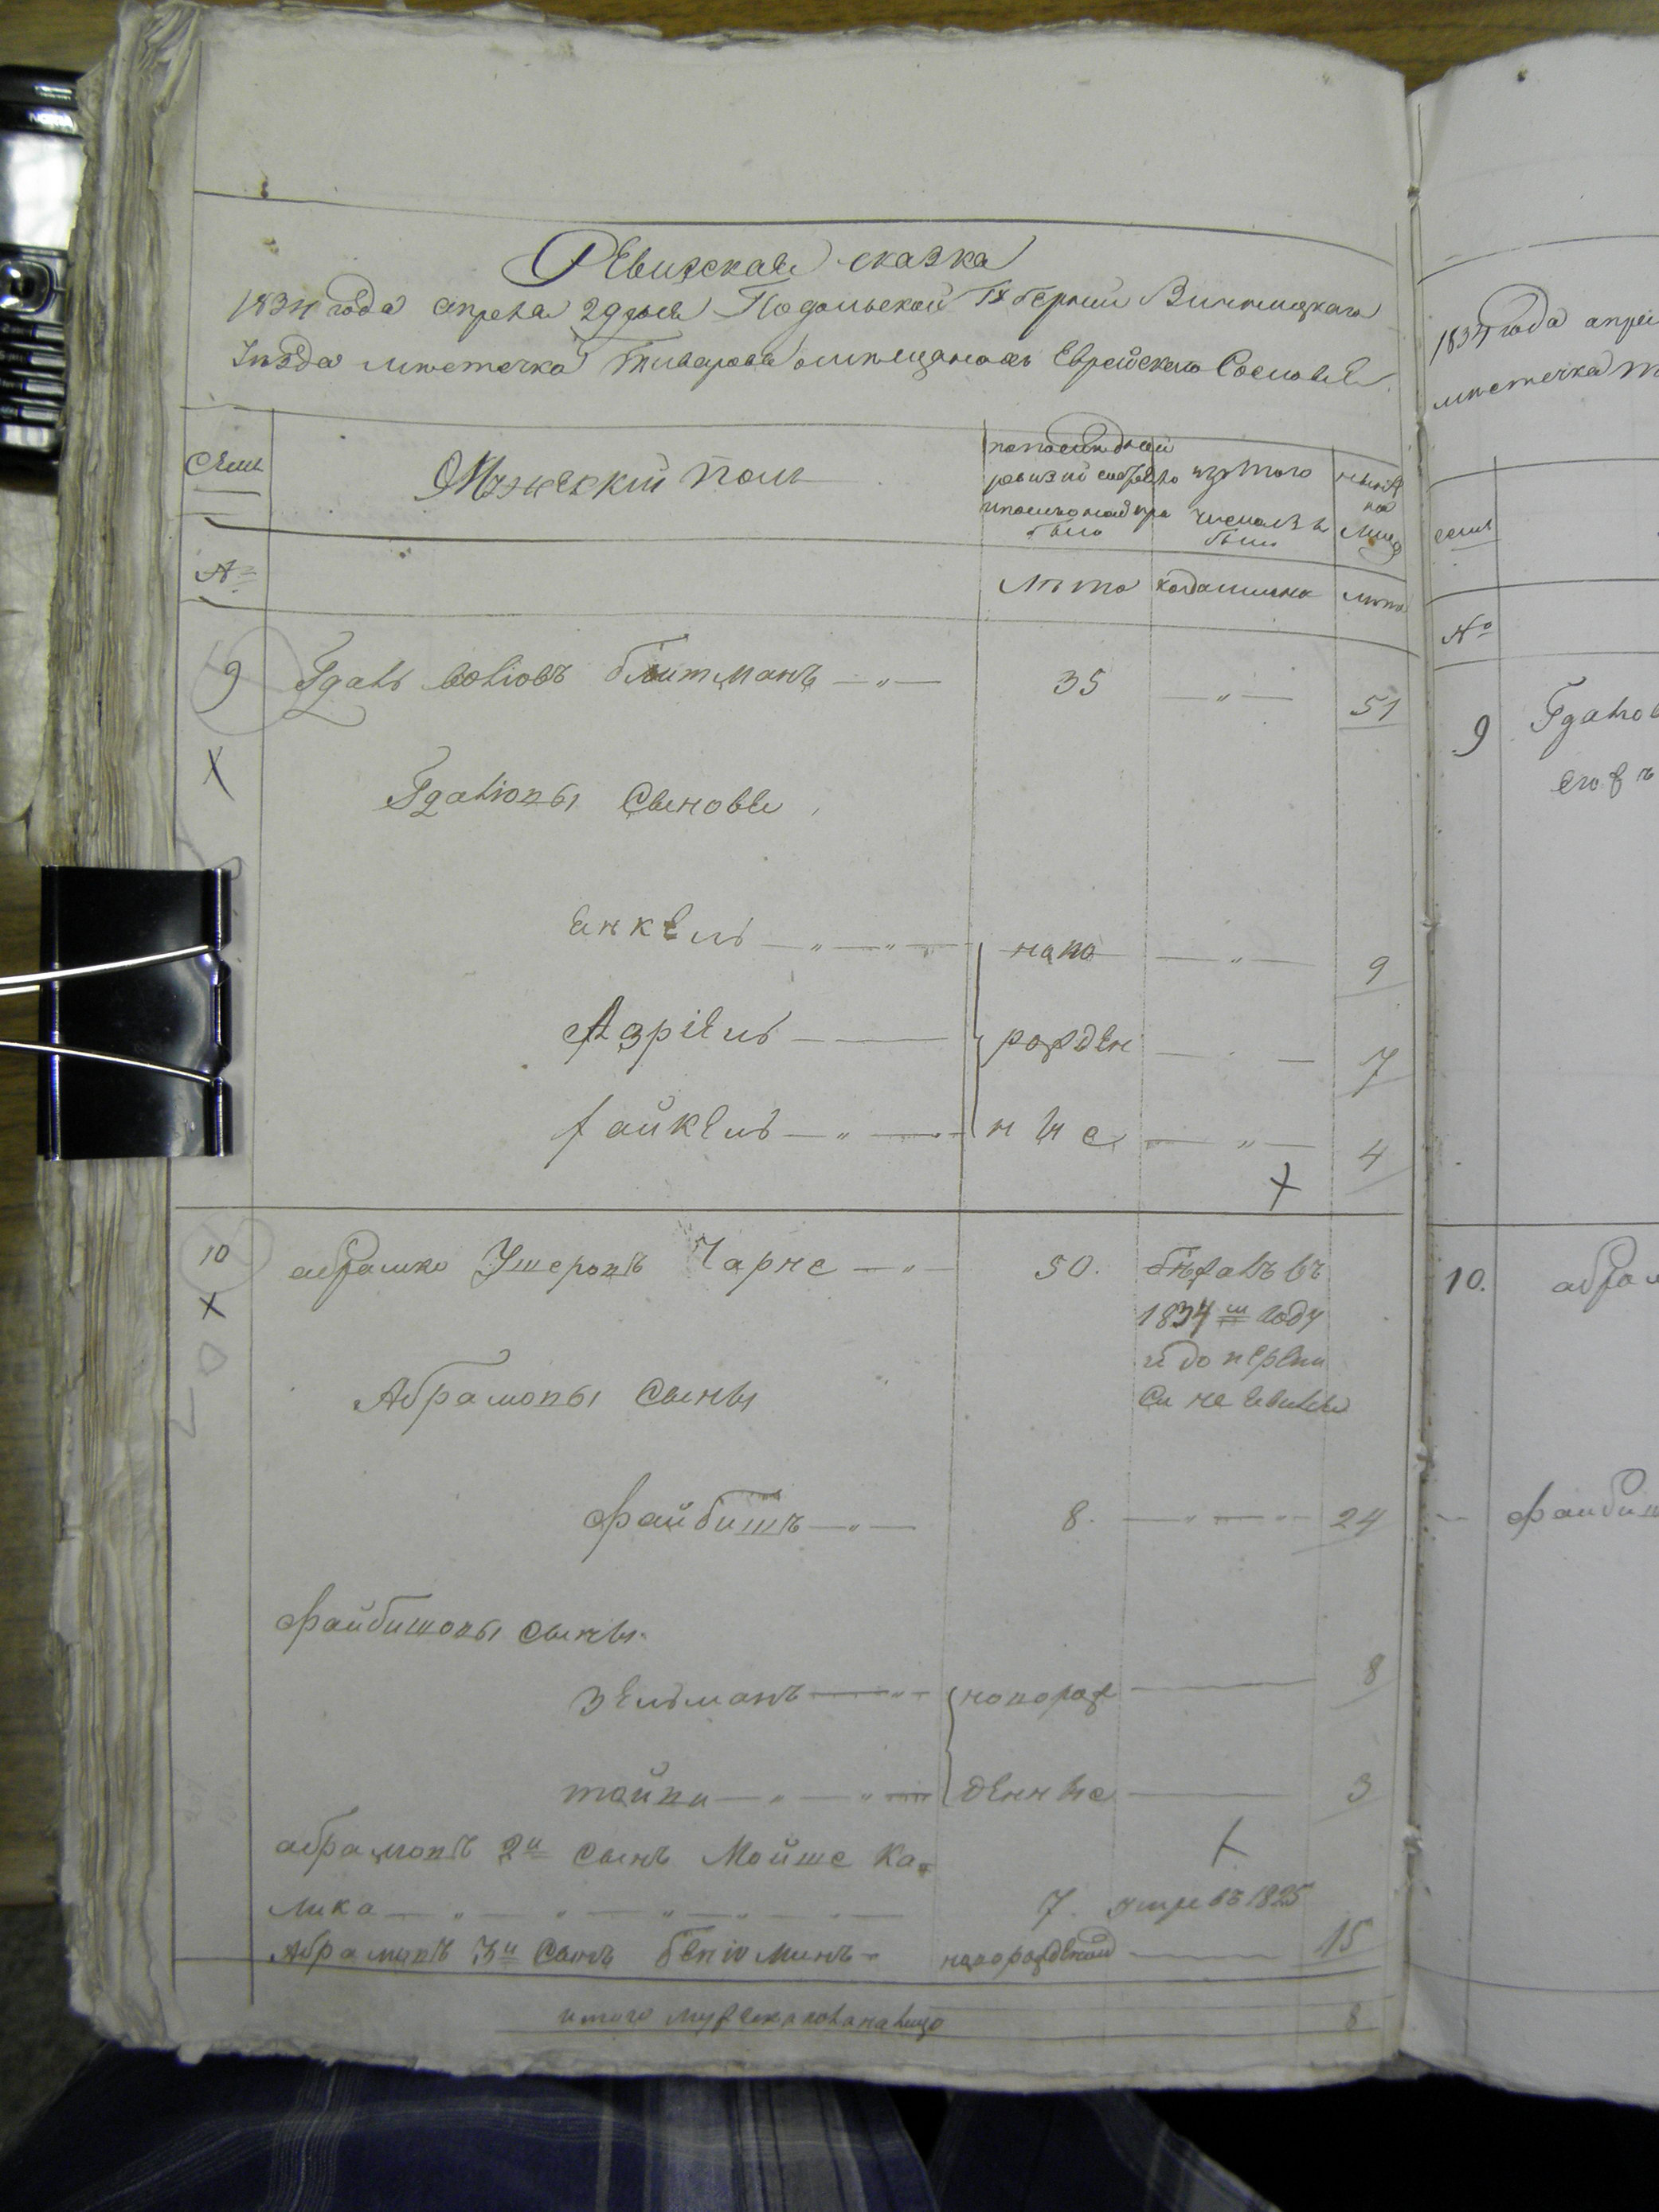 Ревизская сказка
1834 года апреля 29 дня Подольской Губернии Винницкаго
Уезда местечка Тиврова о мещанахъ Еврейского Сословія
Семьи
Мужеский полъ
по последней
ревизии состояло
и после оной при
было
изъ того
числа вы
было
ныне
на
лицо
№
Лета
когда имянно
лета
9
Гдаль волiовъ блитманъ — „ —
35
— „ —
51
Гдалiовы Сыновья
Янкель — „ — „ —
ново
— „ —
9
Азрiель —
рожден
—
7
Хайкель — „ —
ные
— „ —
4
10
абрамко Ушеровъ Чарне — „ —
50.
бежалъ въ
1834 м году
и до переп
си не явился
Абрамовы Сыны
Файбишъ — „ —
8.
— „ — „ —
24
Файбишовы сыны
Зельманъ — „
новорож
—
8
тойви — „ — „ —
денные
—
3
абрамовъ 2й сынъ Мойше Ка
лика — „ — „ — „ — „ —
7.
умре въ 1825
Абрамовъ 3й сынъ беніоминъ
новорожденный
—
15
итого мужеска пола на лицо
8
1834 года апре
местечка Т
семьи
№
9
Гдалов
его ж
10.
абрам
— Файбиш